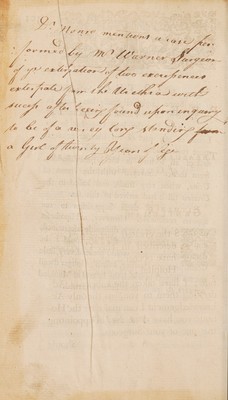 Dr Monro mentions a case per
formed by Mr Warner Surgeon
of ye extirpation of two excrescences
extirpated from the Urethra with
success after being found upon enquiry
to be of a very long standing from
a Girl of twenty Years of age